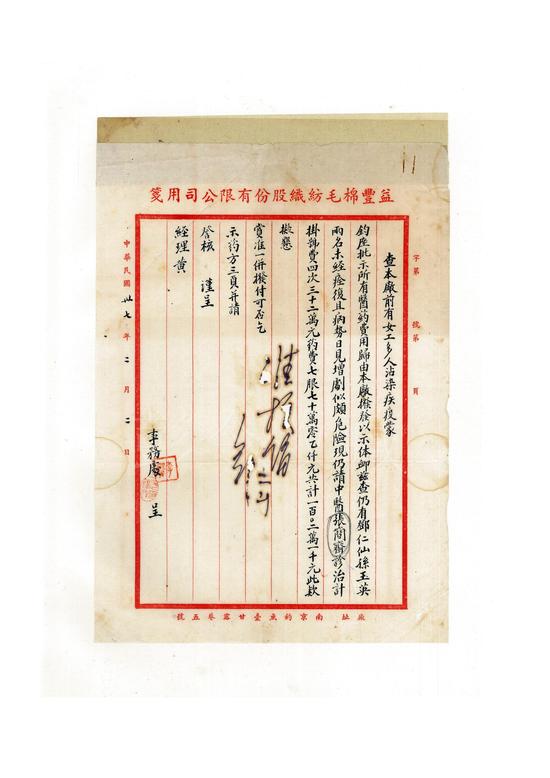 益豐棉毛紡織股份有限公司用箋
字第 號第 頁
查本廠前有女工多人沾染疾疫蒙
鈞座批示所有醫葯費用歸由本廠撥發以示体卹茲查仍有鄧仁仙孫玉英
兩名未經痊復且病勢日見增劇似頗危險現仍請中醫張簡齋診治計
掛號費四次三十二萬元葯費七服七十萬零乙仟元共計一百〇二萬一千元此款
擬懇
賞准一併撥付可否乞
示葯方三頁并請
詧核 謹呈
經理黄
事務處 呈
中華民國卅七年二月二日
廠址 南京釣魚臺甘露巷五號
11